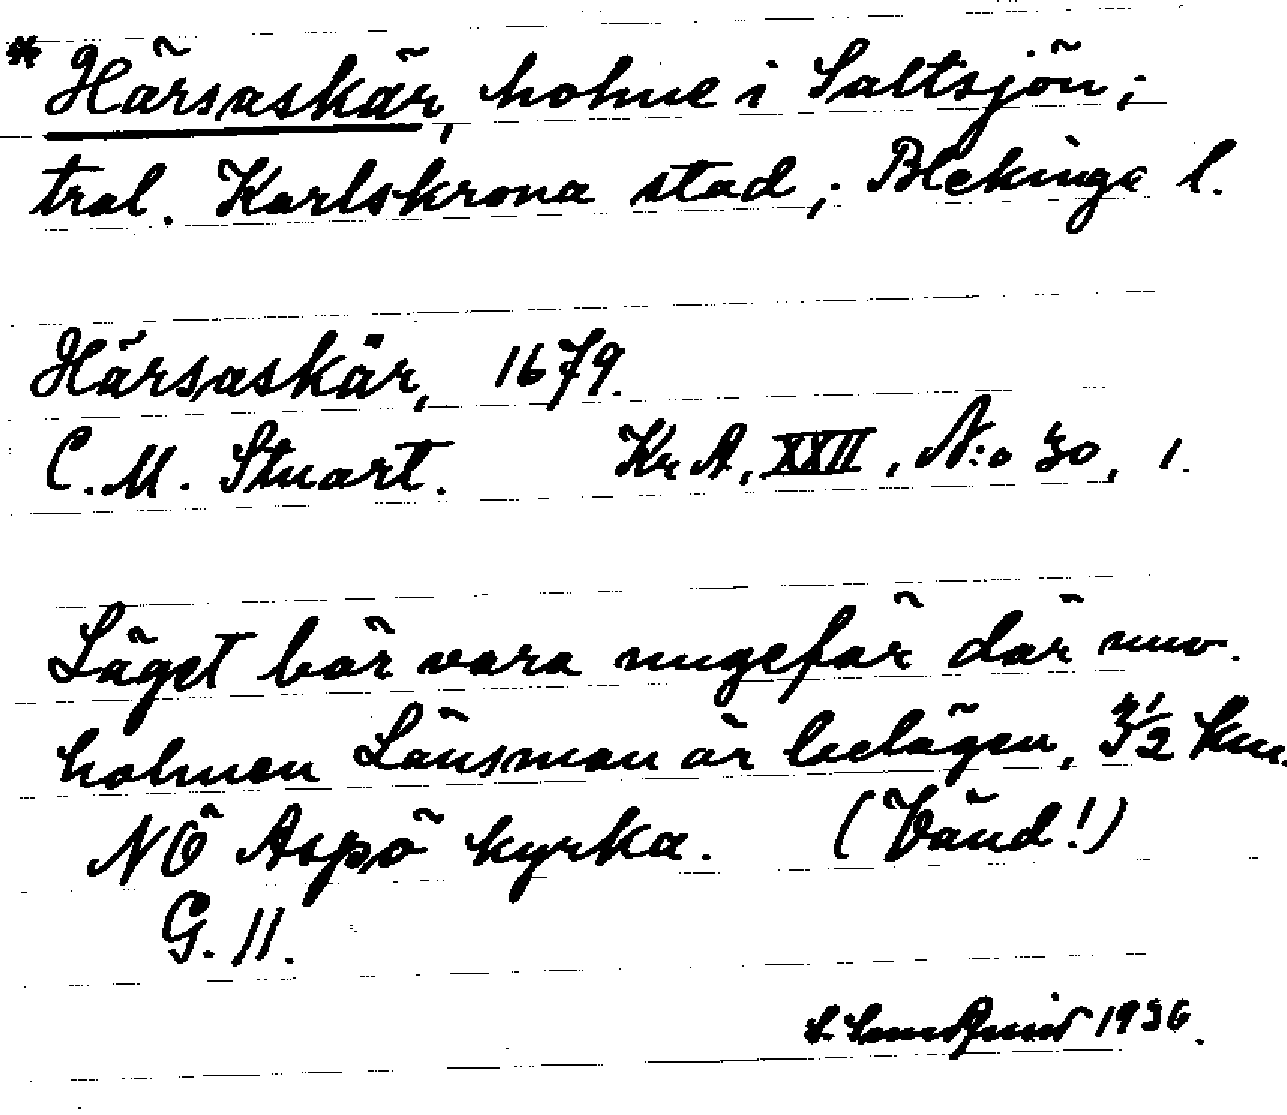 * Härsaskär, holme i Saltsjön;
tral. Karlskrona stad; Blekinge l.
Härsaskär, 1679.
C. M. Stuart. KrA, XXII, N:o 30, 1.
Läget bör vara ungefär där nuv.
holmen Länsman är belägen, 3½ km.
NÖ Aspö kyrka. (Vänd!)
G. 11.
1936.